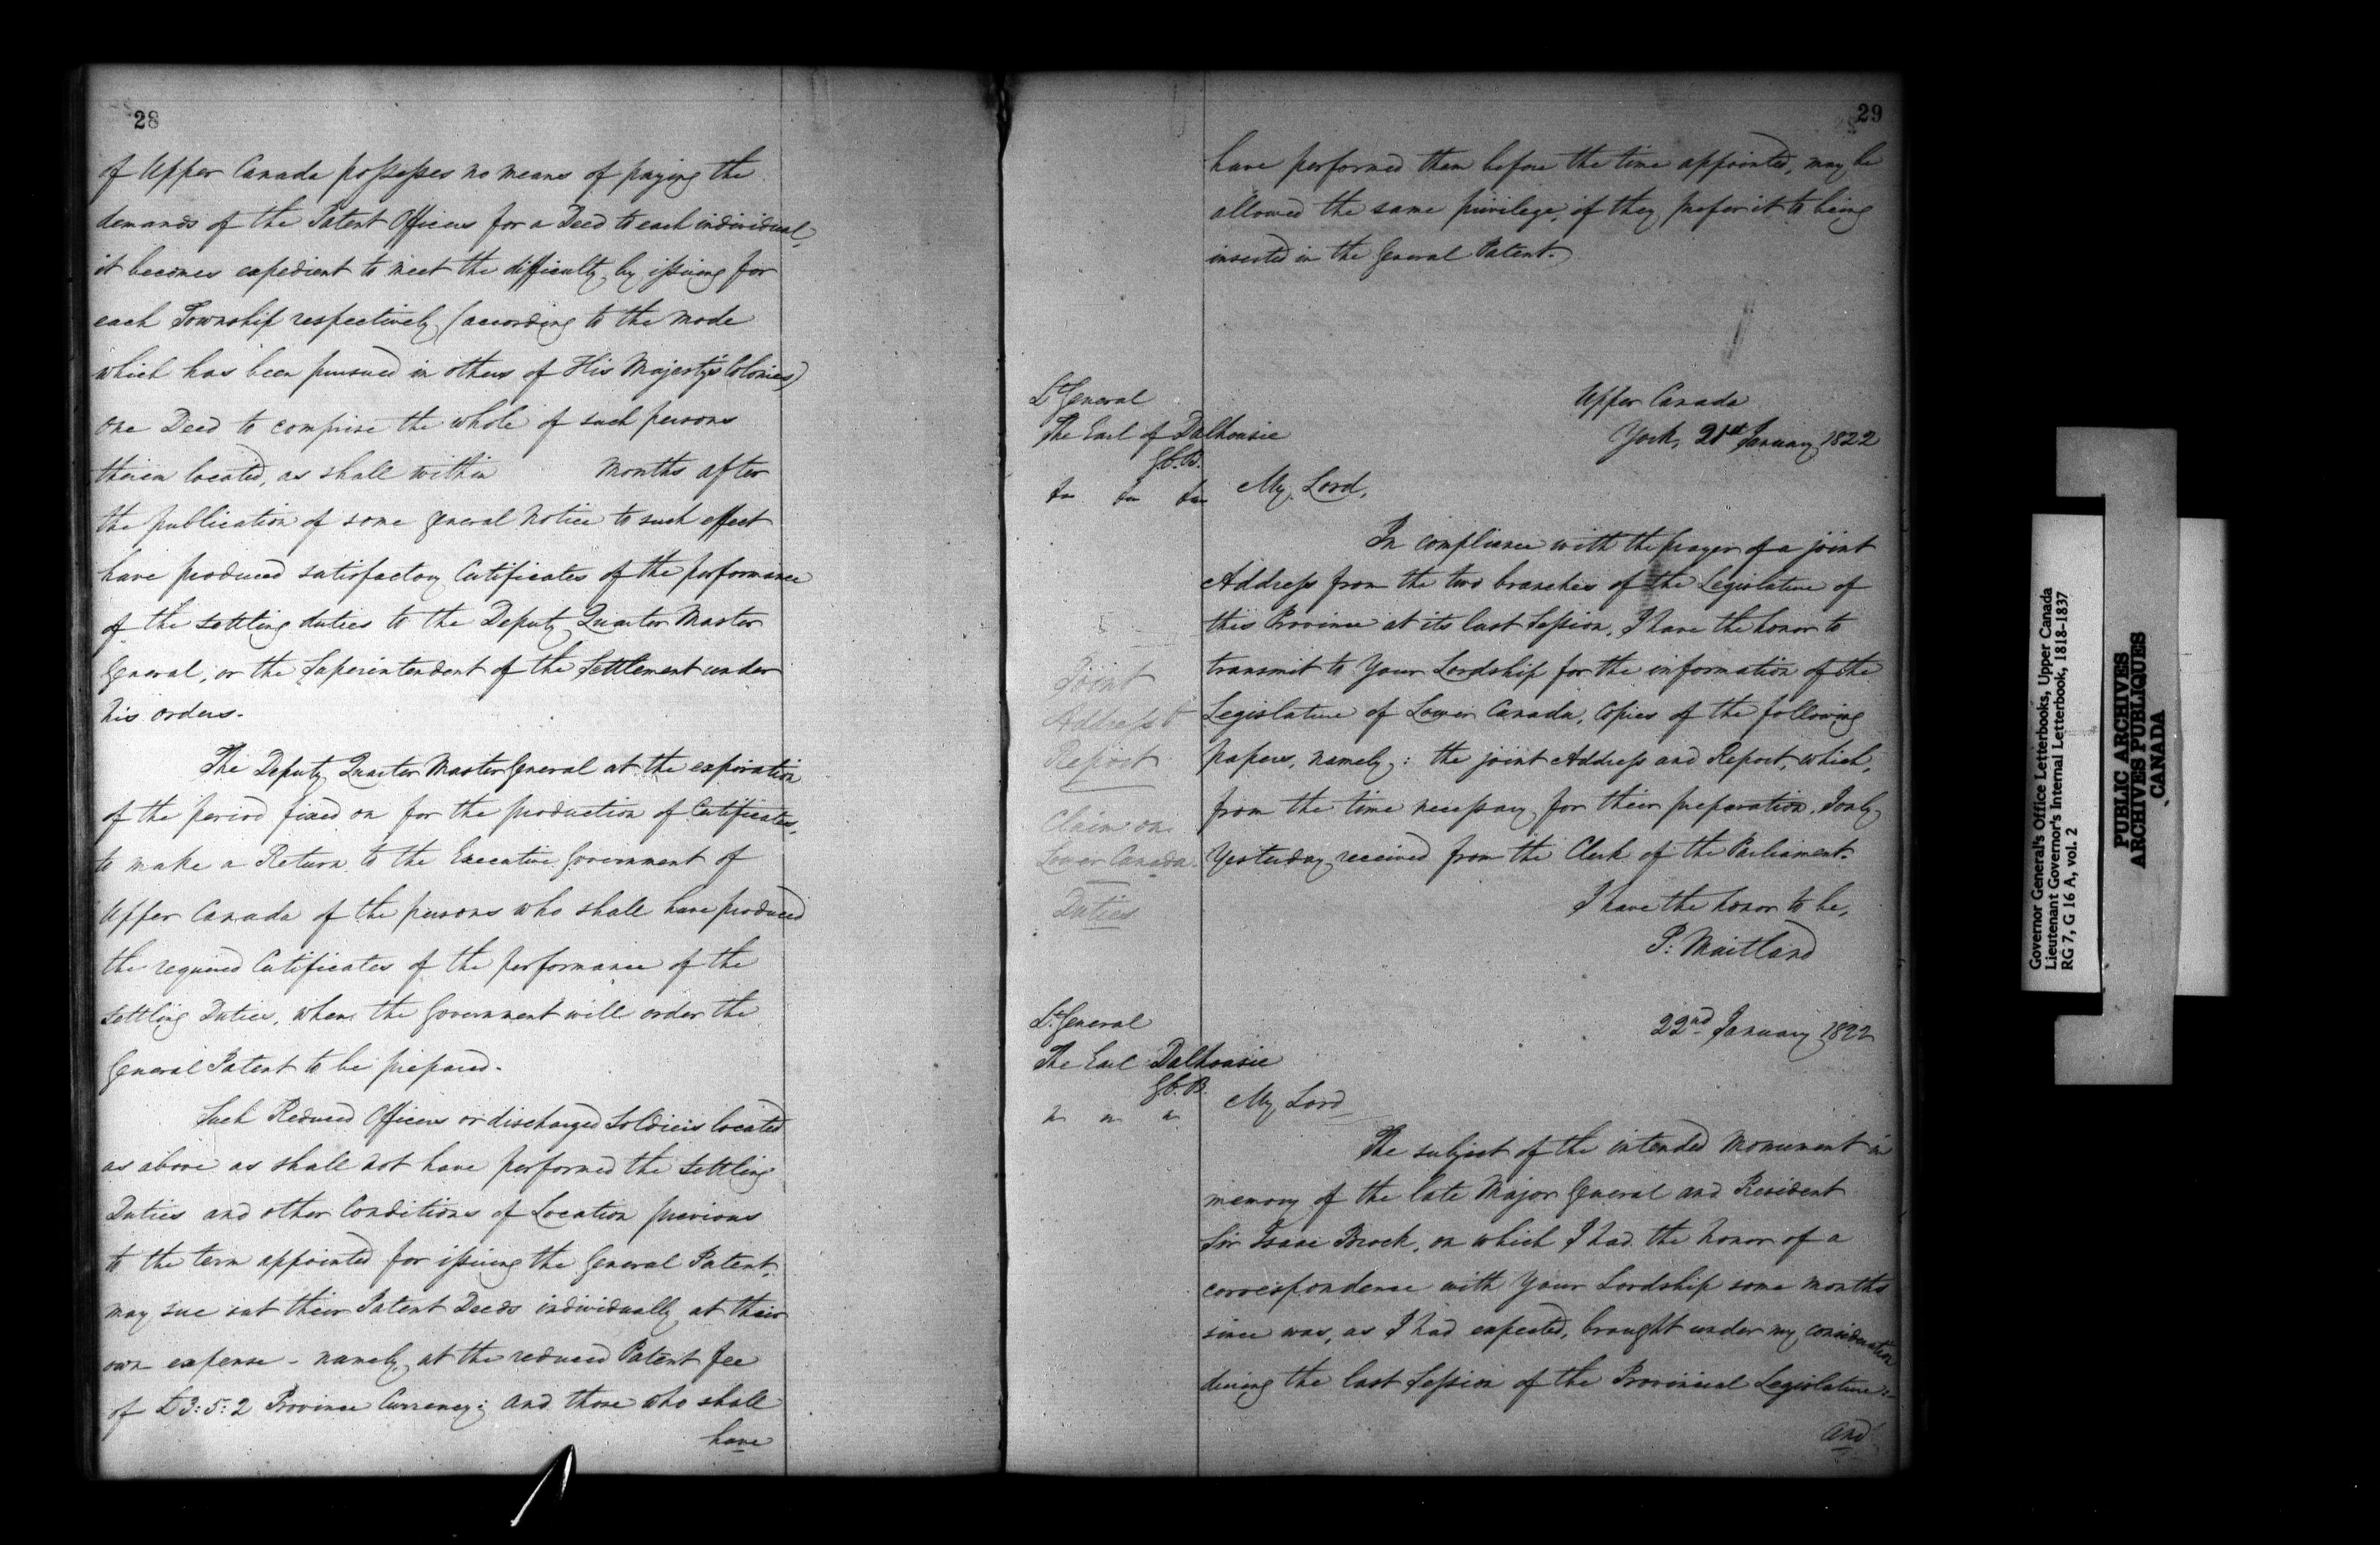 28
of Upper Canada possesses no means of paying the
demands of the Patent Officers for a Deed to each individual,
it becomes expedient to meet the difficulty by issuing for
each Township respectively (according to the mode
which has been pursued in others of His Majesty's Colonies)
one Deed to comprise the whole of such persons
therein located, as shall within months after
the publication of some general Notice to such effect
have produced satisfactory Certificates of the performance
of the settling duties to the Deputy Quarter Master
General, or the Superintendent of the Settlement under
his orders.
The Deputy Quarter Master General at the expiration
of the period fixed on for the production of Certificates,
to make a Return to the Executive Government of
Upper Canada of the persons who shall have produced
the required Certificates of the performance of the
settling Duties, when the Government will order the
General Patent to be prepared.
Such Reduced Officers or discharged Soldiers located
as above as shall not have performed the settling
Duties and other Conditions of Location previous
to the term appointed for issuing the General Patent,
may sue out their Patent Deeds individually at their
own expense - namely, at the reduced Patent fee
of £3:5:2 Province Currency; and those who shall
have
29
have performed them before the time appointed, may be
allowed the same privilege, if they prefer it to being
inserted in the General Patent.
Lt General
The Earl of Dalhousie
G.C.B.
Upper Canada
York, 21st January 1822
My Lord,
In compliance with the prayer of a joint
Address from the two branches of the Legislature of
this Province at its last Session, I have the honor to
transmit to Your Lordship for the information of the
Legislature of Lower Canada, Copies of the following
papers, namely: the joint Address and Report, which,
from the time necessary for their preparation, I only
Yesterday received from the Clerk of the Parliament.
Joint
Address &
Report
Claim on
Lower Canada
Duties
I have the honor to be,
P: Maitland
Lt General
The Earl Dalhousie
G.C.B.
22nd January 1822
My Lord
The subject of the intended Monument in
memory of the late Major General and President
Sir Isaac Brock, on which I had the honor of a
correspondence with Your Lordship some months
since was, as I had expected, brought under my consideration
during the last Session of the Provincial Legislature:-
and
Governor General's Office Letterbooks, Upper Canada
Lieutenant Governor's Internal Letterbook, 1818-1837
RG 7, G 16 A, vol. 2
PUBLIC ARCHIVES
ARCHIVES PUBLIQUES
CANADA